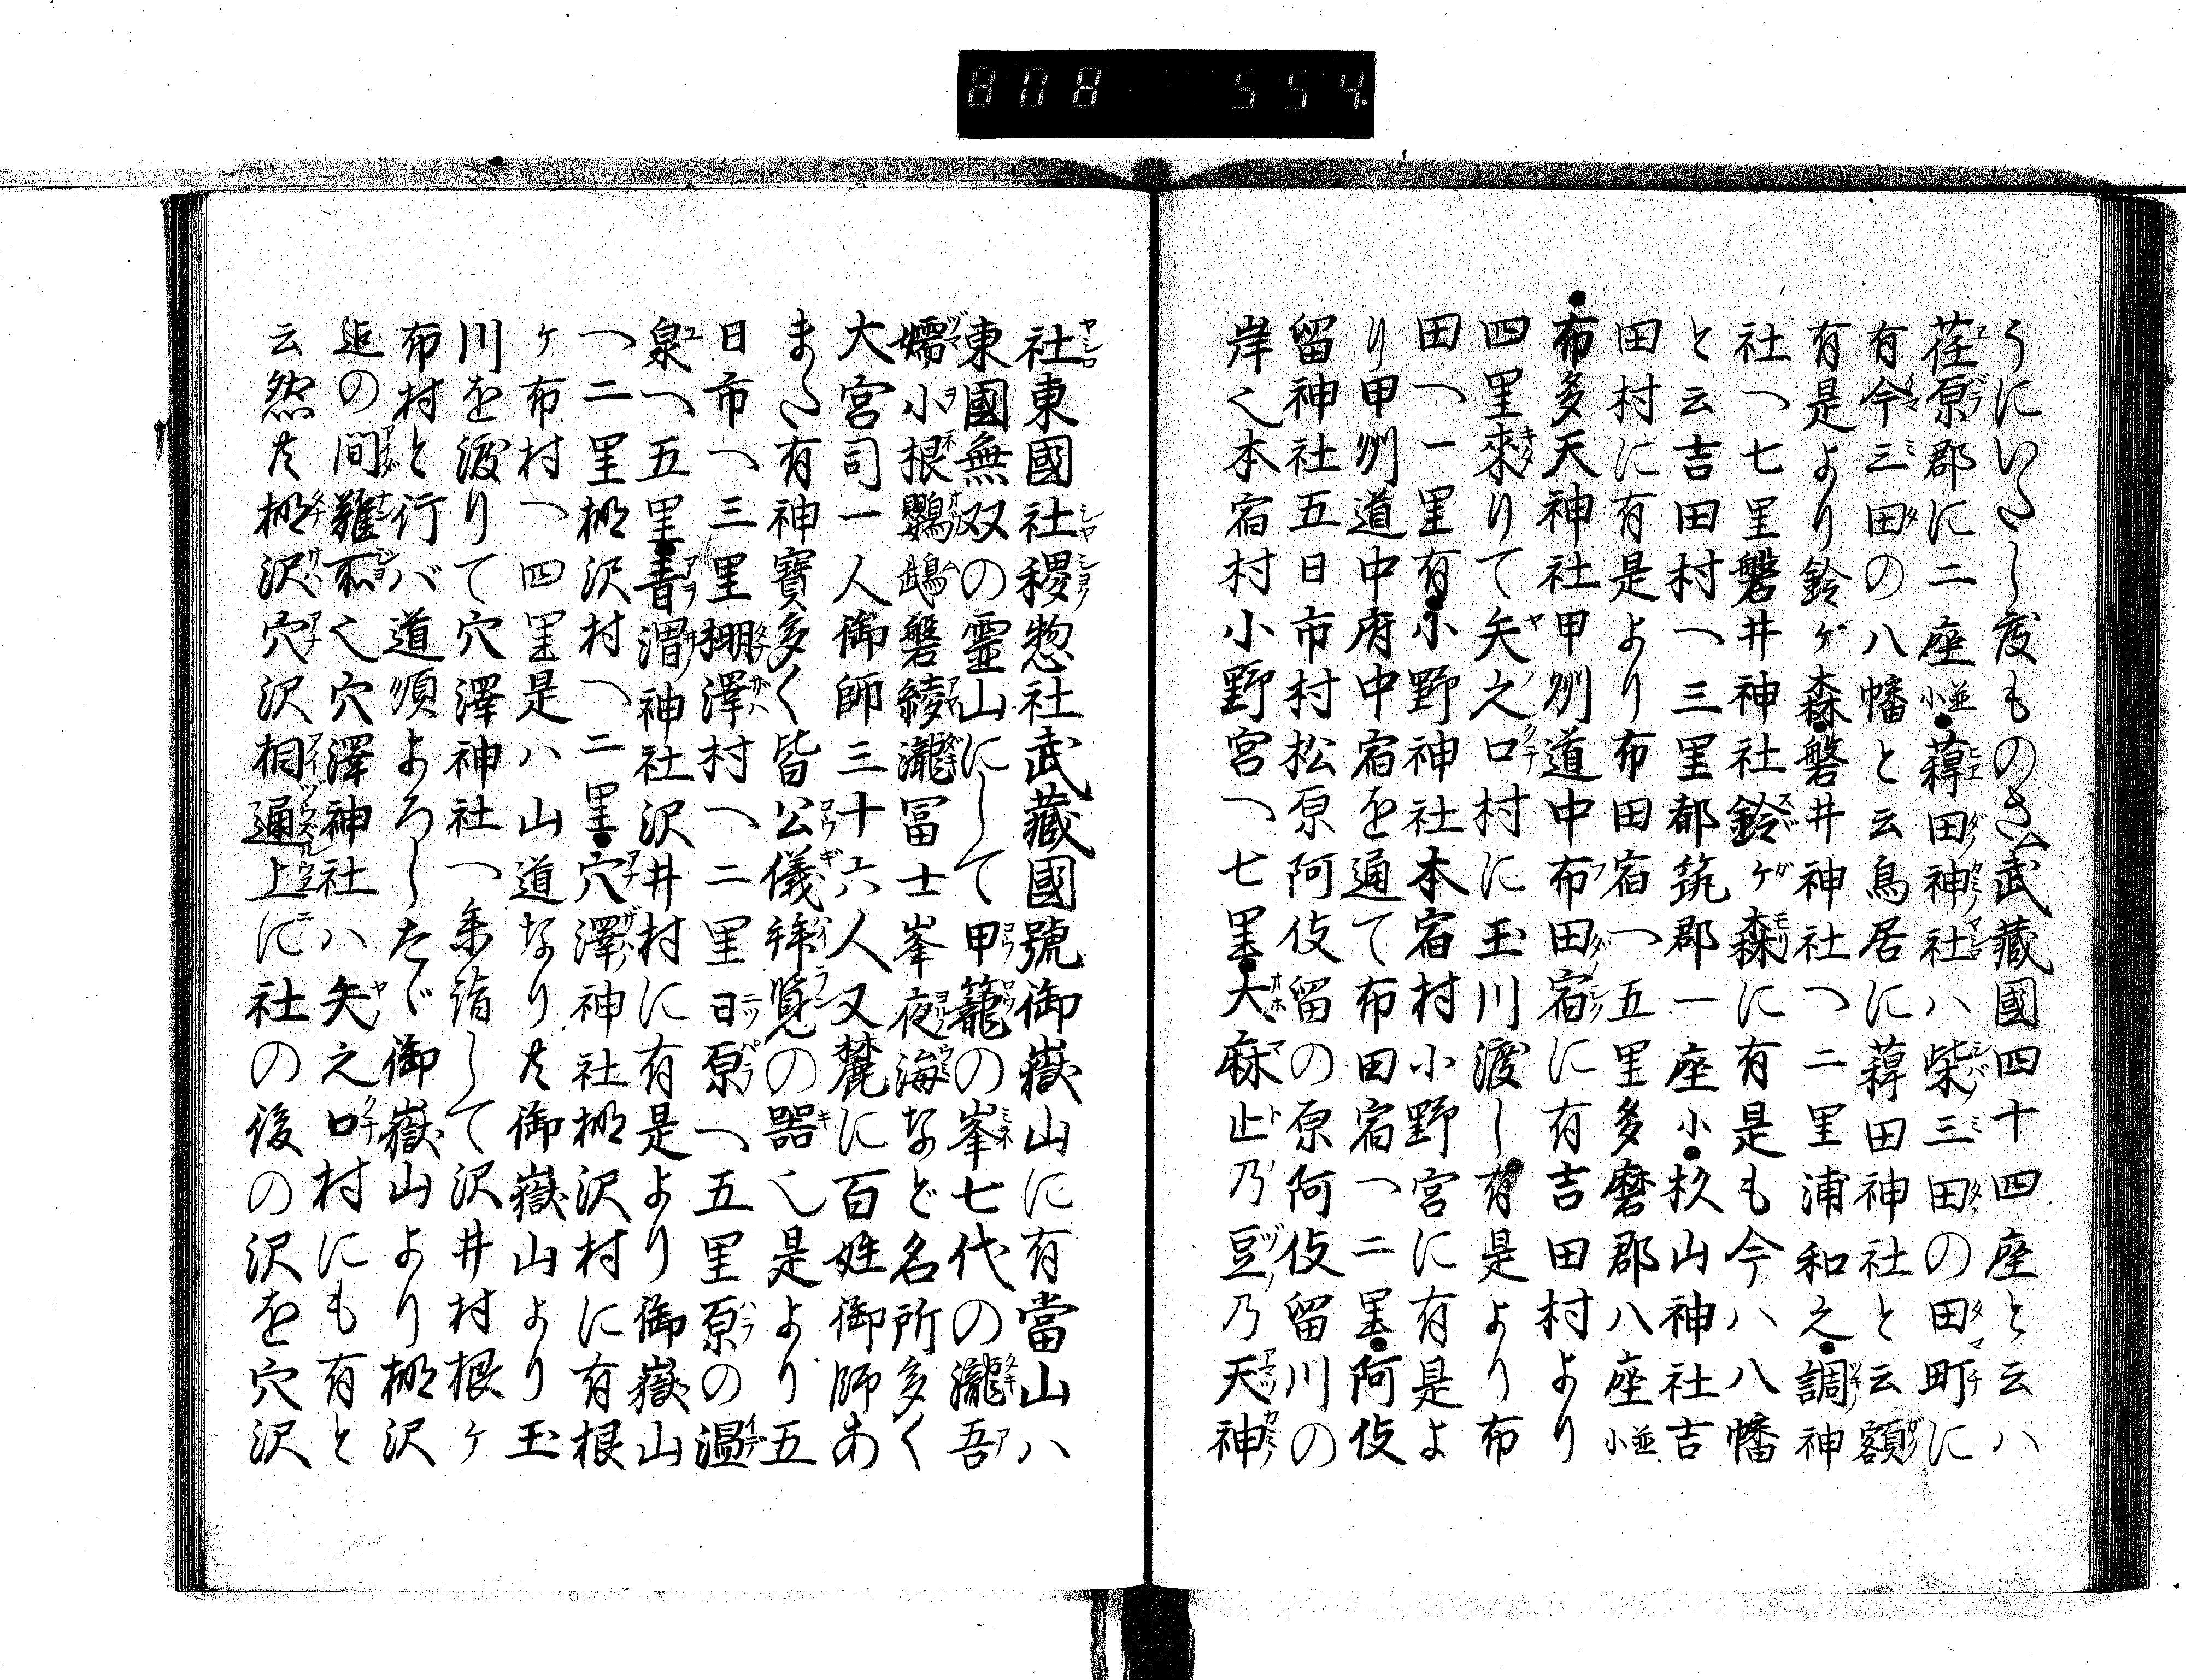 808 554.
うにいたし度ものさて武藏國四十四座と云ハ
荏原郡に二座 並小 ●薭田神社ハ柴三田の田町に
有今三田の八幡と云鳥居に薭田神社と云額
有是より鈴ヶ森●磐井神社へ二里浦和之●調神
社へ七里磐井神社鈴ヶ森に有是も今ハ八幡
と云吉田村へ三里都筑郡一座小●杦山神社吉
田村に有是より布田宿へ五里多磨郡八座 並小
●布多天神社甲刕道中布田宿に有吉田村より
四里來りて矢之口村に玉川渡し有是より布
田へ一里有●小野神社本宿村小野宮に有是よ
り甲刕道中府中宿を通て布田宿へ二里●阿伎
留神社五日市村松原阿伎留の原阿伎留川の
岸也本宿村小野宮へ七里●大麻止乃豆乃天神
社東國社稷惣社武藏國號御嶽山に有當山ハ
東國無双の靈山にして甲籠の峯七代の瀧吾
嬬小根鸚鵡磐綾瀧冨士峯夜海など名所多く
大宮司一人御師三十六人又麓に百姓御師あ
また有神寳多く皆公儀拜覧の器也是より五
日市へ三里棚澤村へ二里日原へ五里原の温
泉へ五里●青渭神社沢井村に有是より御嶽山
へ二里棚沢村へ二里●穴澤神社棚沢村に有根
ヶ布村へ四里是ハ山道なり夫御嶽山より玉
川を渡りて穴澤神社へ参詣して沢井村根ヶ
布村と行バ道順よろしたゞ御嶽山より棚沢
迠の間難所也穴澤神社ハ矢之口村にも有と
云然共棚沢穴沢相通上に社の後の沢を穴沢